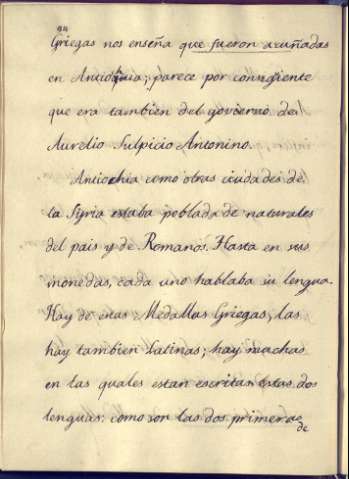 94
Griegas nos enseña que fueron acuñadas
en Antiochia; parece por consiguiente
que era tambien del govierno de
Aurelio Sulpicio Antonino.
Antiochia como otras ciudades de
la Syria estaba poblada de naturales
del pais y de Romanos. Hasta en sus
monedas, cada uno hablaba su lengua.
Hay de estas Medallas Griegas, las
hay tambien Latinas; hay muchas
en las quales estan escritas estas dos
lenguas: como son las dos primeras
de